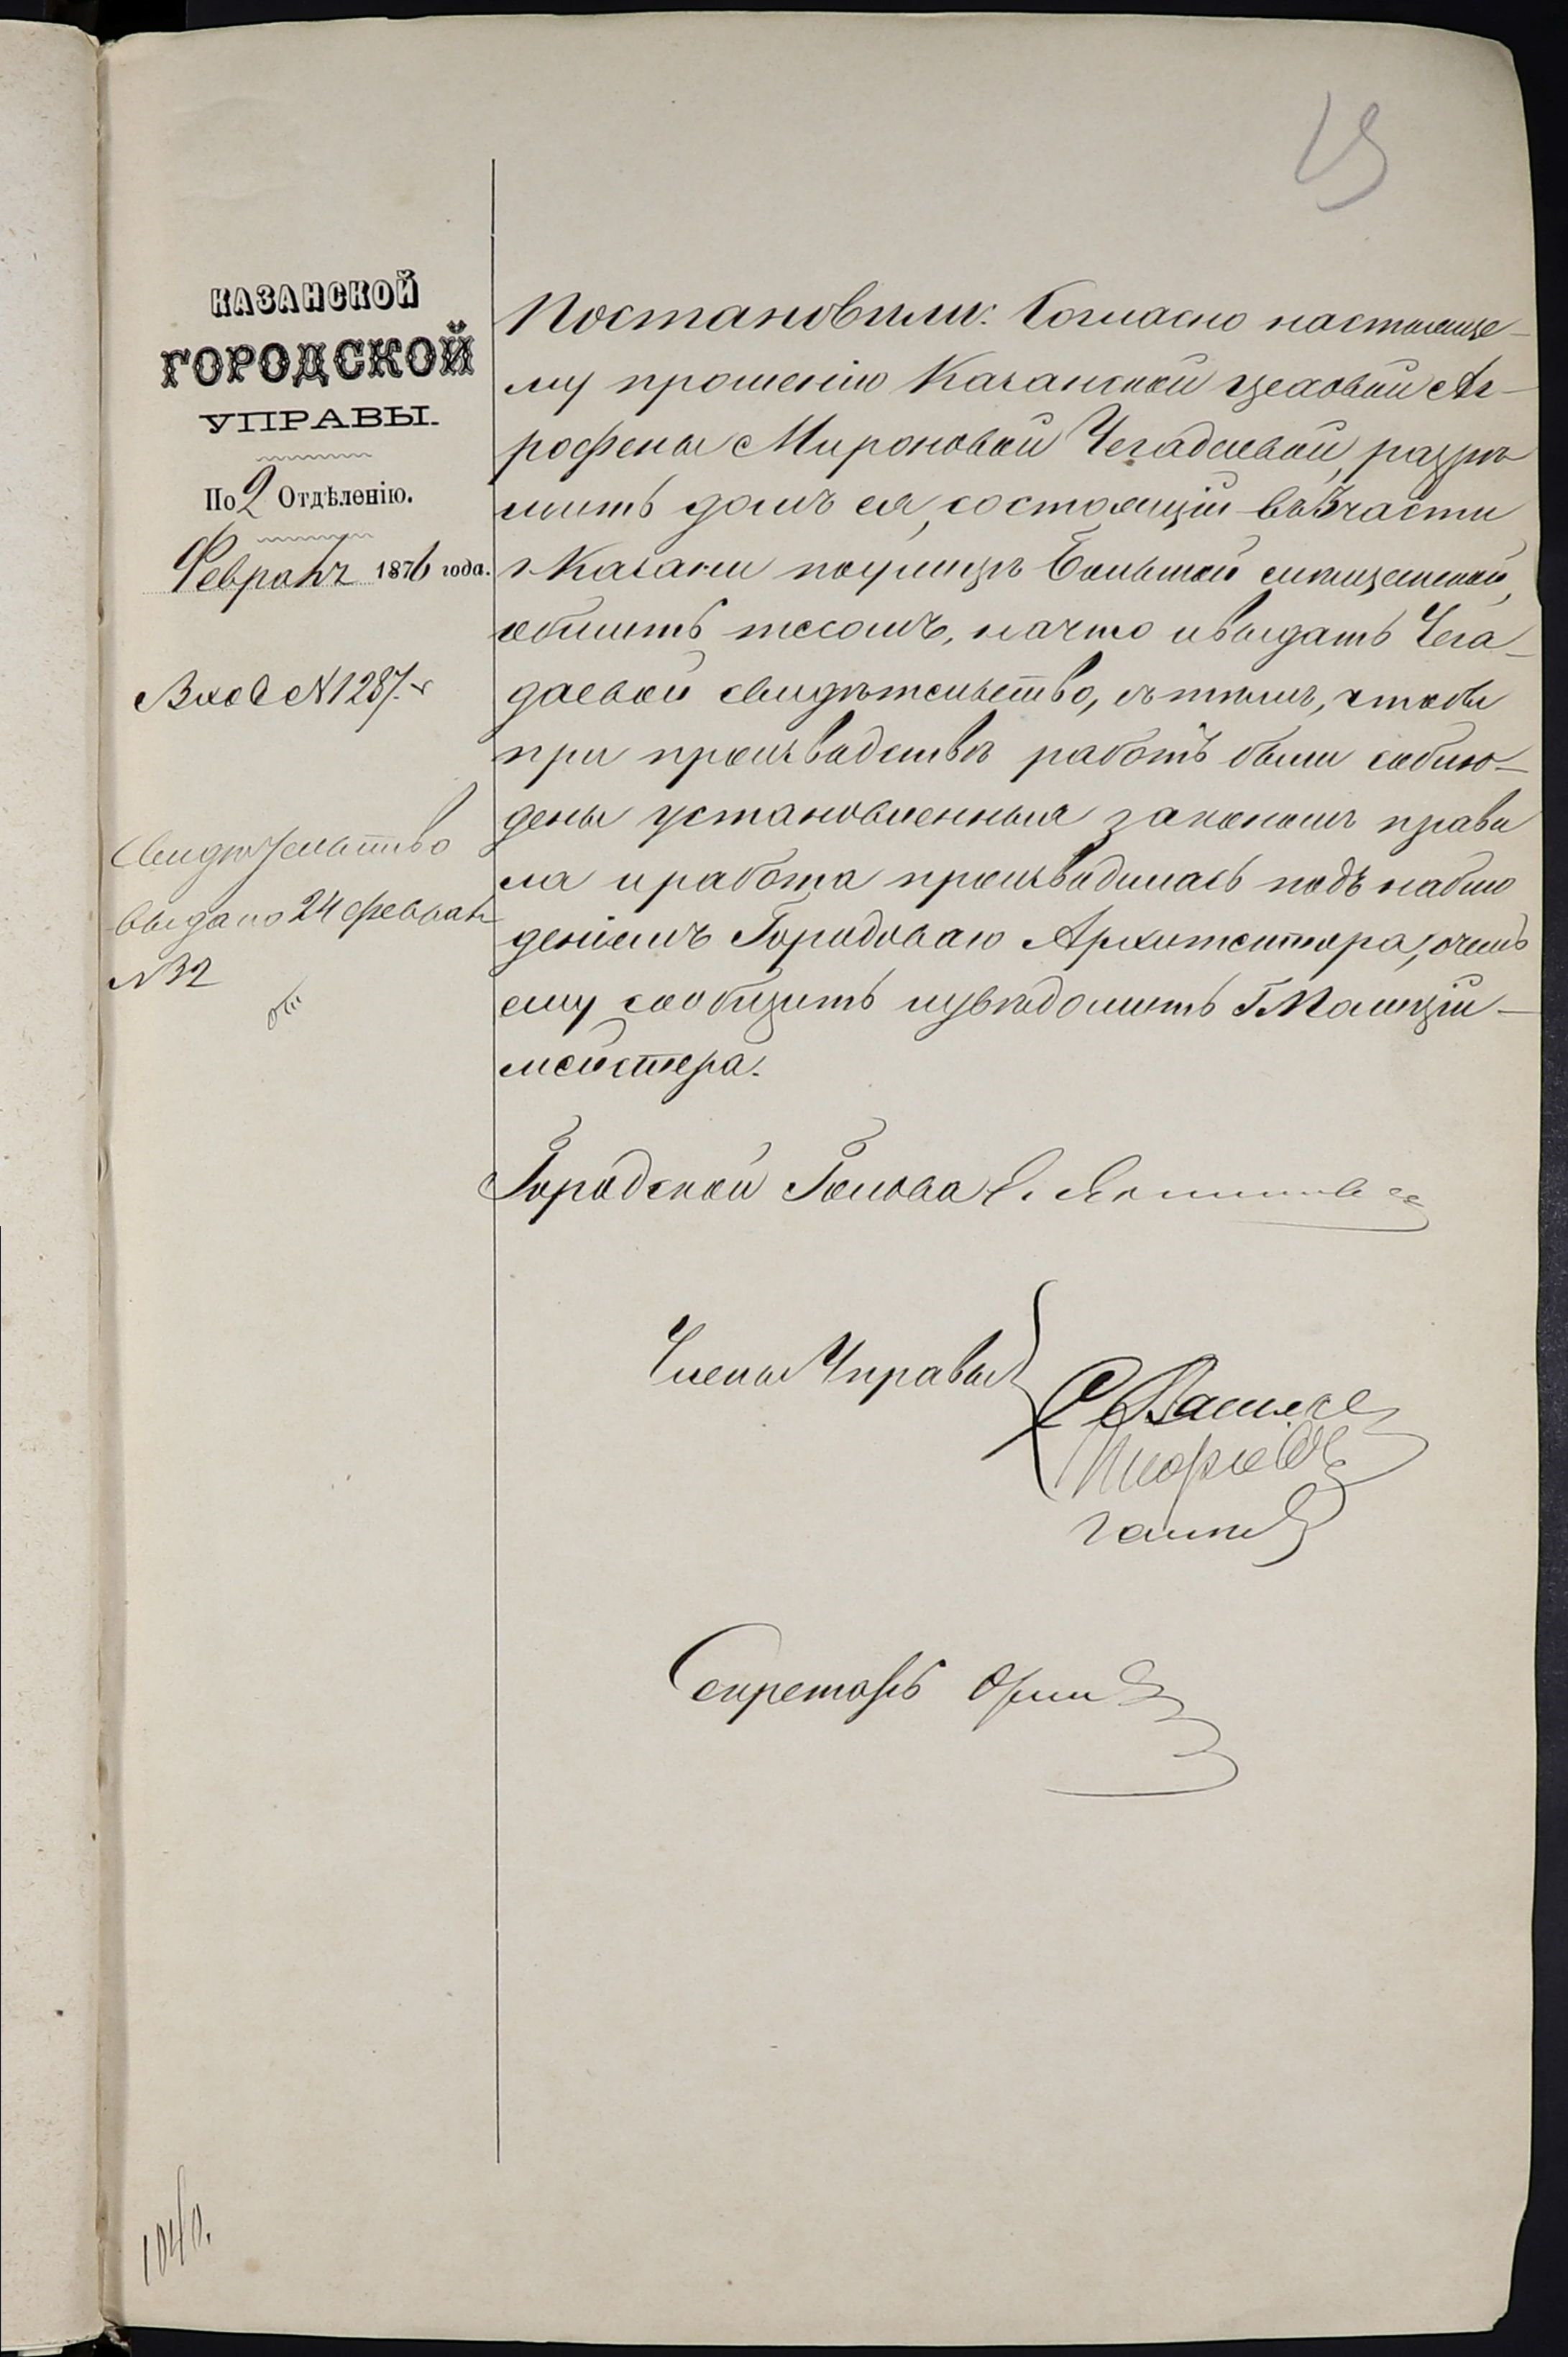 19
КАЗАНСКОЙ
ГОРОДСКОЙ
УПРАВЫ.
По 2 Отдѣленію.
Февраля 1876 года.
Вход №1287.
Свидѣтельство
выдано 24 февраля
№32
Постановили: Согласно настояще-
му прошенію Казанской цеховой Аг-
рофены Мироновой Чегадаевой, разрѣ
шить домъ ея, состоящій въ 3 части
г. Казани по улицѣ Большой
обшить тесомъ, на что и выдать Чега-
даевой свидѣтельство, съ тѣмъ, чтобы
при производствѣ работъ были соблю-
дены установленныя закономъ прави
ла и работа производилась подъ наблю
деніемъ Городоваго Архитектора, о чемъ
ему сообщить и увѣдомить Г. Полиціи-
мейстера.
Городской Голова
Члены Управы
Секретарь
1040.